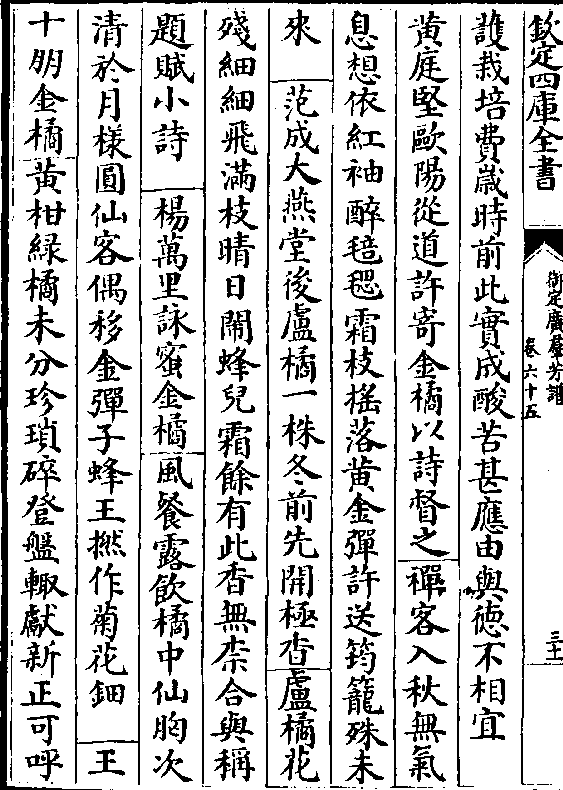 欽定四庫全書
御定廣羣芳譜
卷六十五
三十
䕶栽培費嵗時前此實成酸苦甚應由與徳不相宜
黄庭堅歐陽從道許寄金橘以詩督之禪客入秋無氣
息想依紅袖醉毰毸霜枝揺落黄金彈許送筠籠殊未
來范成大燕堂後盧橘一株冬前先開極香盧橘花
殘細細飛滿枝晴日鬧蜂兒霜餘有此香無柰合與稱
題賦小詩楊萬里詠蜜金橘風餐露飲橘中仙胸次
清於月様圓仙客偶移金彈子蜂王撚作菊花鈿王
十朋金橘黄柑緑橘未分珍瑣碎登盤輙獻新正可呼